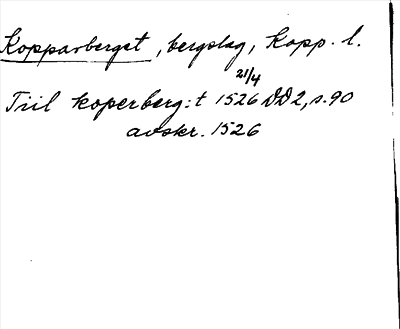 Kopparberget, bergslag, Kopp. l.
21/4
Tiil koperberg:t 1526 DD2, s. 90
avskr. 1526